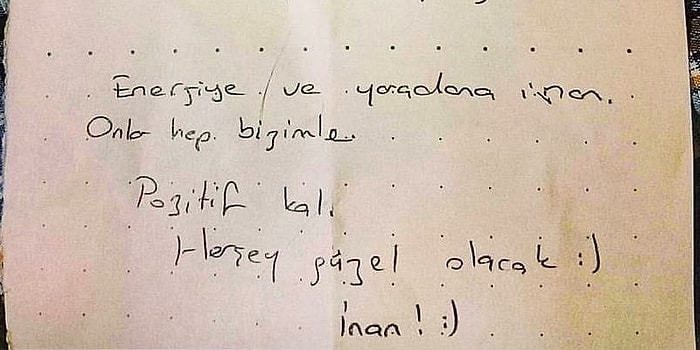 Enerjiye ve yaradana inan.
Onlar hep bizimle.
Pozitif kal.
Herşey güzel olacak :)
inan! :)